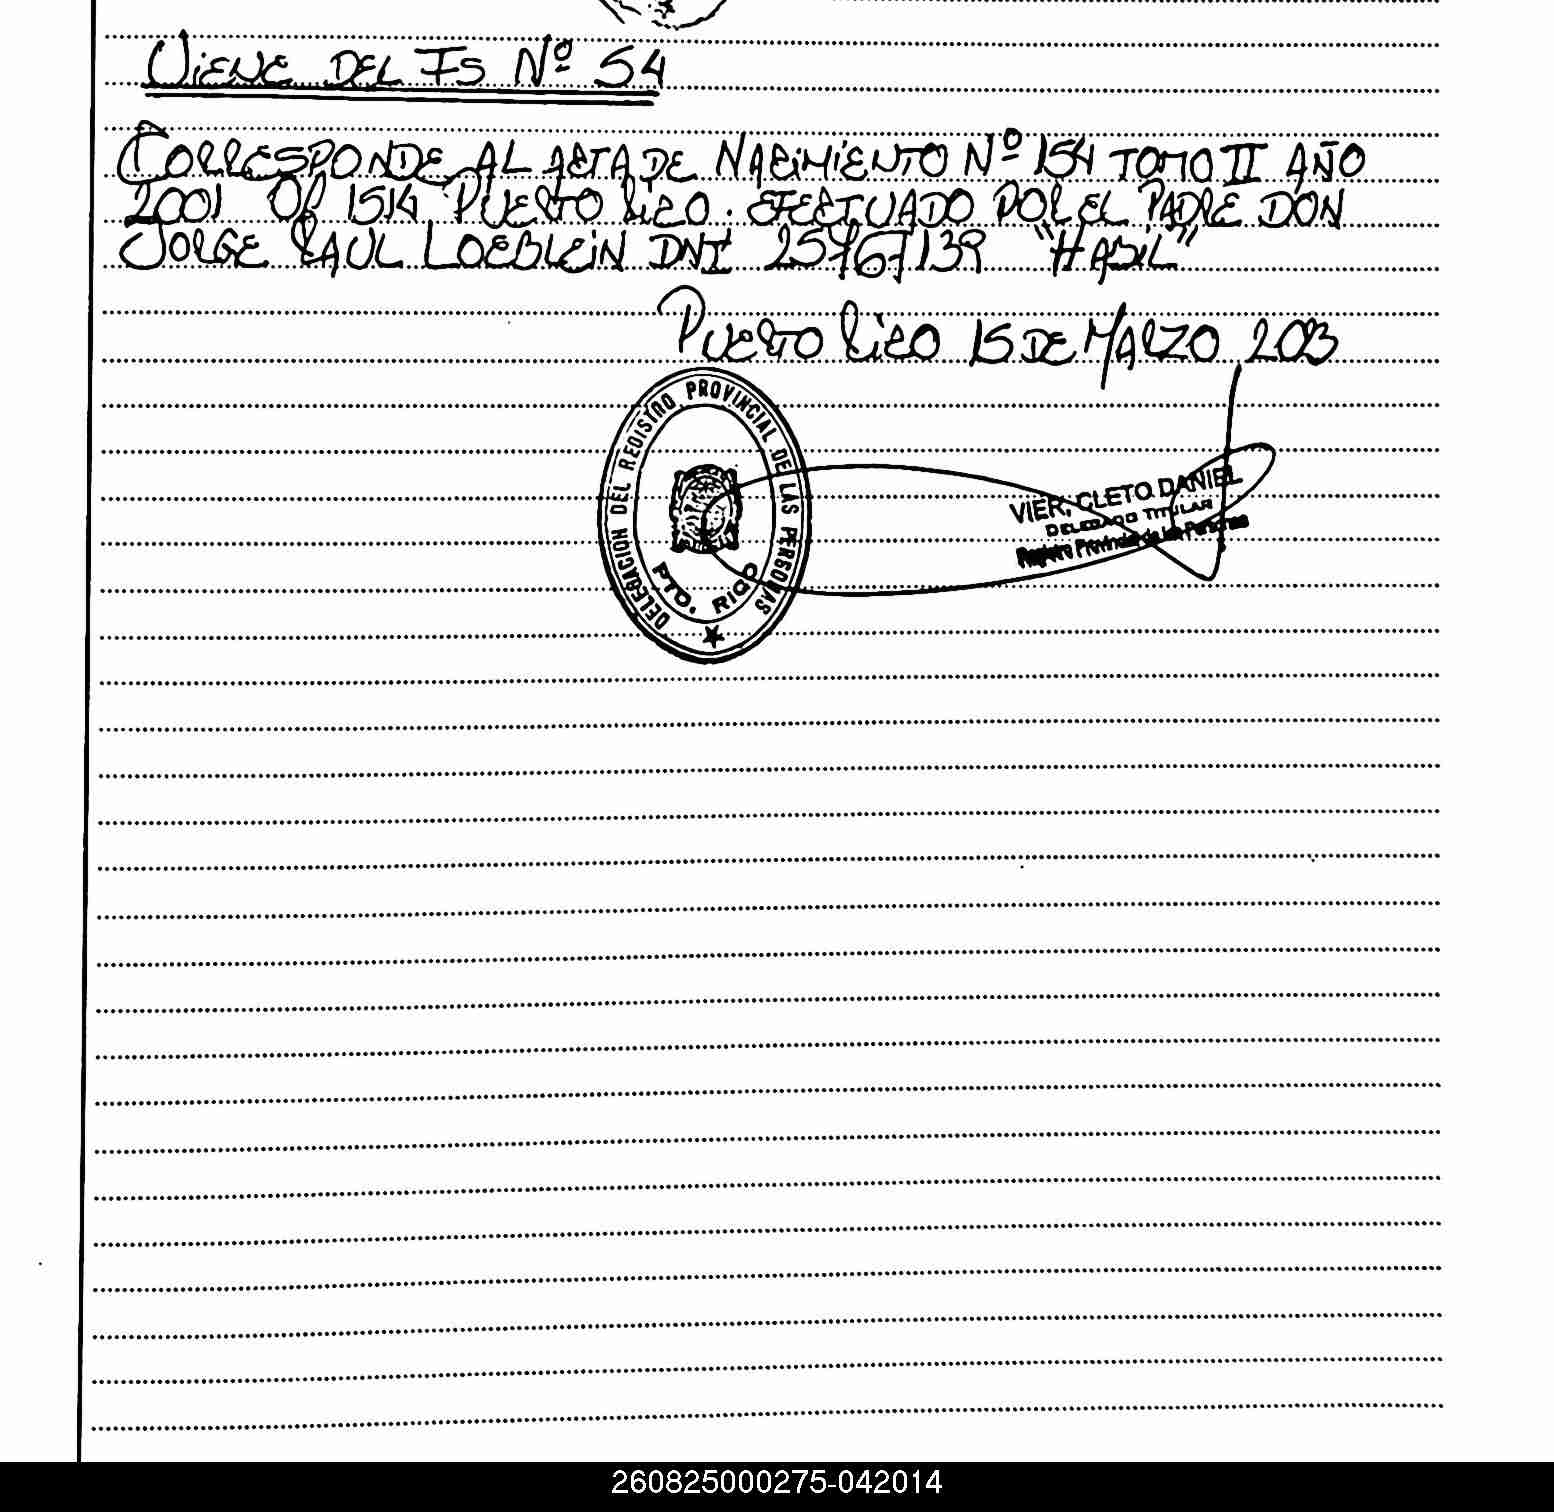 VIENE DEL FS Nº 54
CORRESPONDE AL ACTA DE NACIMIENTO Nº 154 TOMO II AÑO
2001 OF 1514 PUERTO RICO. EFECTUADO POR EL PADRE DON
JORGE RAUL LOEBLEIN DNI 25767139 "HABIL"
PUERTO RICO 15 DE MARZO 2023
DELEGACION DEL REGISTRO PROVINCIAL DE LAS PERSONAS
PTO. RICO
VIER, CLETO DANIEL
DELEGADO TITULAR
Registro Provincial de las Personas
260825000275-042014